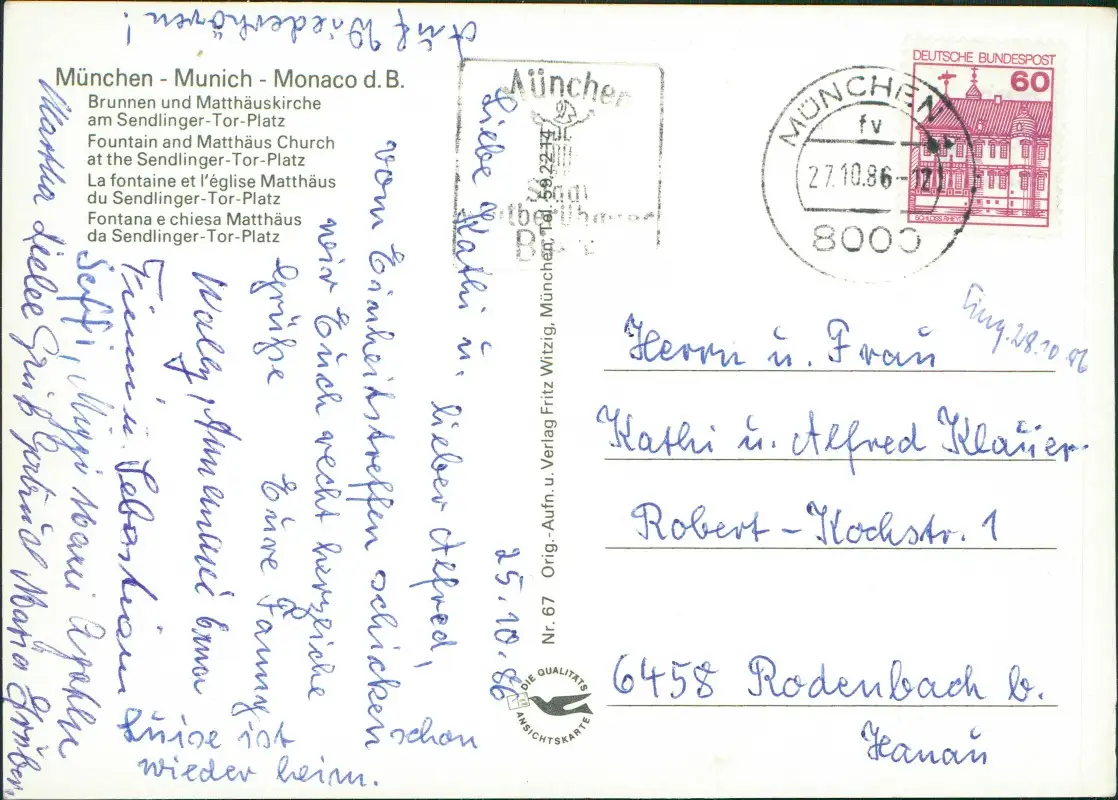 München - Munich - Monaco d. B.
Brunnen und Matthäuskirche
am Sendlinger-Tor-Platz
Fountain and Matthäus Church
at the Sendlinger-Tor-Platz
La fontaine et l'église Matthäus
du Sendlinger-Tor-Platz
Fontana e chiesa Matthäus
da Sendlinger-Tor-Platz
25.10.86
Liebe Kathi u.
lieber Alfred,
vom Einheitstreffen schicken
wir Euch recht herzliche
Grüße Eure Fanny
Wally, Annemarie
Fini u. Sebastian
Seffi, Maria
Martha Maria Gruber.
Luise ist schon
wieder heim.
Auf Wiederhören!
Nr. 67 Orig.-Aufn. u. Verlag Fritz Witzig, München, Tel. 59 22 14
DIE QUALITÄTS
ANSICHTSKARTE
München
Stadt
MÜNCHEN
fv
27.10.86-12
8000
DEUTSCHE BUNDESPOST
60
Eing. 28.10.86
Herrn u. Frau
Kathi u. Alfred Klauer
Robert-Kochstr. 1
6458 Rodenbach b.
Hanau